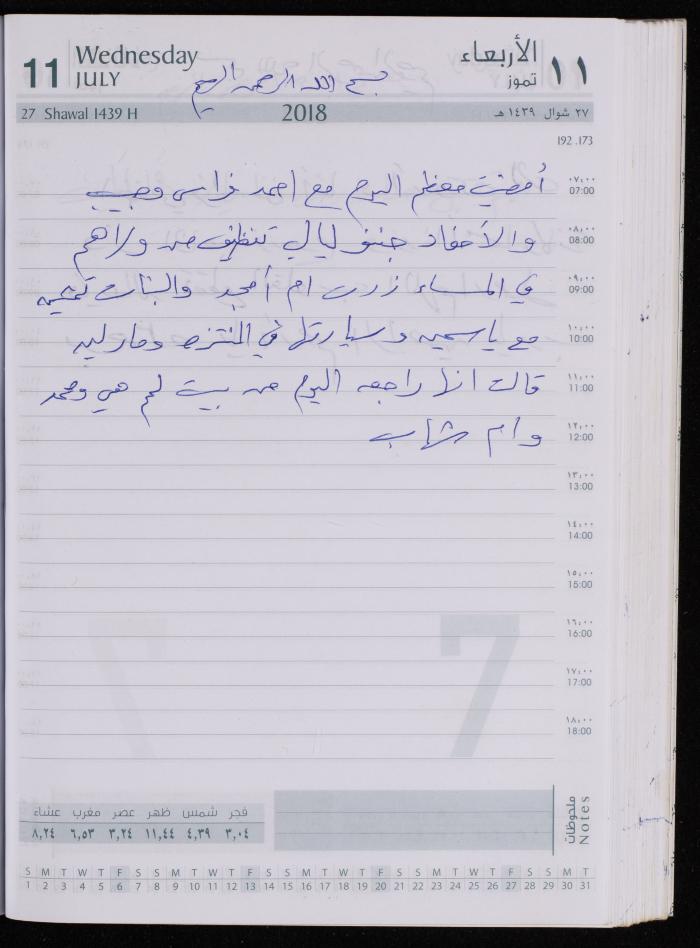 11 Wednesday JULY
الأربعاء تموز ١١
بسم الله الرحمن الرحيم
27 Shawal 1439 H 2018 ٢٧ شوال ١٤٣٩ هـ
192 .173
أمضيت معظم اليوم مع احمد فراس وحبيب
٠٧,٠٠ 07:00
والأحفاد جنى ليالي تنظيف من وراهم
٠٨,٠٠ 08:00
في المساء زرت ام أمجد والبنات
٠٩,٠٠ 09:00
مع ياسمين وسيارتها في المنتزه
١٠,٠٠ 10:00
قالت انها راجعه اليوم من بيت لحم هي ومحمد
١١,٠٠ 11:00
وام شهاب
١٢,٠٠ 12:00
١٣,٠٠ 13:00
١٤,٠٠ 14:00
١٥,٠٠ 15:00
١٦,٠٠ 16:00
١٧,٠٠ 17:00
١٨,٠٠ 18:00
7
ملحوظات Notes
فجر شمس ظهر عصر مغرب عشاء
٣,٠٤ ٤,٣٩ ١١,٤٤ ٣,٢٤ ٦,٥٣ ٨,٢٤
S M T W T F S S M T W T F S S M T W T F S S M T W T F S S M T
1 2 3 4 5 6 7 8 9 10 11 12 13 14 15 16 17 18 19 20 21 22 23 24 25 26 27 28 29 30 31